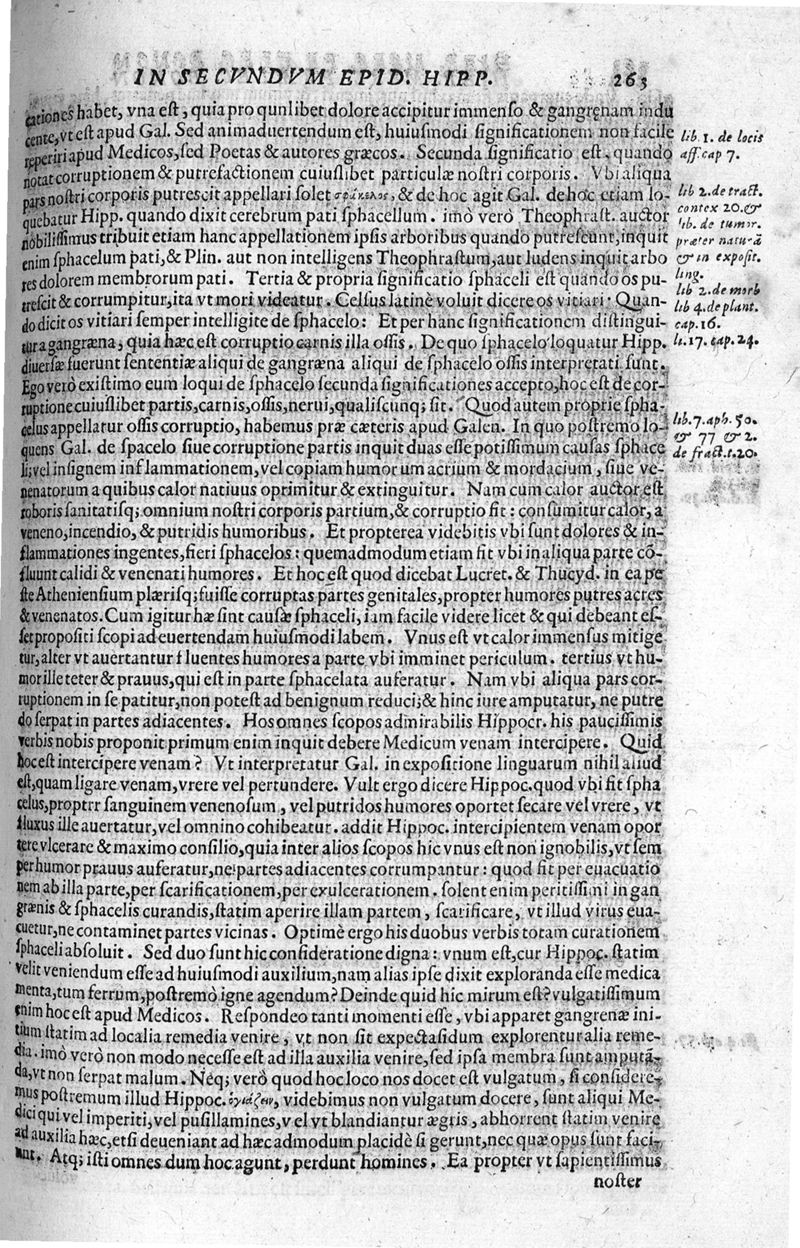 IN SECVNDVM EPID. HIPP. 263
cationes habet, vna est, quia pro qunlibet dolore accipitur immenso & gangręnam indu
cente, vt est apud Gal. Sed animaduertendum est, huiusmodi significationem non facile
reperiri apud Medicos, sed Poetas & autores græcos. Secunda significatio est. quando
notat corruptionem & putrefactionem cuiuslibet particulæ nostri corporis. Vbi aliqua
pars nostri corporis putrescit appellari solet σφάκελος, & de hoc agit Gal. de hoc etiam lo-
quebatur Hipp. quando dixit cerebrum pati sphacellum. imò verò Theophrast. auctor
nobilissimus tribuit etiam hanc appellationem ipsis arboribus quando putrescunt, inquit
enim sphacelum pati, & Plin. aut non intelligens Theophrastum, aut ludens inquit arbo
res dolorem membrorum pati. Tertia & propria significatio sphaceli est quando os pu-
trescit & corrumpitur, ita vt mori videatur. Celsus latinè voluit dicere os vitiari. Quan-
do dicit os vitiari semper intelligite de sphacelo: Et per hanc significationem distingui-
tur a gangræna, quia hæc est corruptio carnis illa ossis. De quo sphacelo loquatur Hipp.
diuersæ fuerunt sententiæ aliqui de gangræna aliqui de sphacelo ossis interpretati sunt.
Ego verò existimo eum loqui de sphacelo secunda significationes accepto, hoc est de cor-
ruptione cuiuslibet partis, carnis, ossis, nerui, qualiscunq; sit. Quod autem proprie spha-
celus appellatur ossis corruptio, habemus præ cæteris apud Galen. In quo postremo lo-
quens Gal. de spacelo siue corruptione partis inquit duas esse potissimum causas sphace
li; vel insignem inflammationem, vel copiam humorum acrium & mordacium, siue ve-
nenatorum a quibus calor natiuus oprimitur & extinguitur. Nam cum calor auctor est
roboris sanitatisq; omnium nostri corporis partium, & corruptio fit: consumitur calor, a
veneno, incendio, & putridis humoribus. Et propterea videbitis vbi sunt dolores & in-
flammationes ingentes, fieri sphacelos: quemadmodum etiam fit vbi in aliqua parte cō-
fluunt calidi & venenati humores. Et hoc est quod dicebat Lucret. & Thucyd. in ea pe
ste Atheniensium plærisq; fuisse corruptas partes genitales, propter humores putres acres
& venenatos. Cum igitur hæ sint causæ sphaceli, iam facile videre licet & qui debeant es-
set propositi scopi ad euertendam huiusmodi labem. Vnus est vt calor immensus mitige
tur, alter vt auertantur fluentes humores a parte vbi imminet periculum. tertius vt hu-
mor ille teter & prauus, qui est in parte sphacelata auferatur. Nam vbi aliqua pars cor-
ruptionem in se patitur, non potest ad benignum reduci; & hinc iure amputatur, ne putre
do serpat in partes adiacentes. Hos omnes scopos admirabilis Hippocr. his paucissimis
verbis nobis proponit primum enim inquit debere Medicum venam intercipere. Quid
hoc est intercipere venam? Vt interpretatur Gal. in expositione linguarum nihil aliud
est, quam ligare venam, vrere vel pertundere. Vult ergo dicere Hippoc. quod vbi fit spha
celus, proptrr sanguinem venenosum, vel putridos humores oportet secare vel vrere, vt
fluxus ille auertatur, vel omnino cohibeatur. addit Hippoc. intercipientem venam opor
tere vlcerare & maximo consilio, quia inter alios scopos hic vnus est non ignobilis, vt sem
per humor prauus auferatur, ne partes adiacentes corrumpantur: quod fit per euacuatio
nem ab illa parte, per scarificationem, per exulcerationem. solent enim peritissimi in gan
grænis & sphacelis curandis, statim aperire illam partem, scarificare, vt illud virus eua-
cuetur, ne contaminet partes vicinas. Optimè ergo his duobus verbis totam curationem
sphaceli absoluit. Sed duo sunt hic consideratione digna: vnum est, cur Hippoc. statim
velit veniendum esse ad huiusmodi auxilium, nam alias ipse dixit exploranda esse medica
menta, tum ferrum, postremò igne agendum? Deinde quid hic mirum est? vulgatissimum
enim hoc est apud Medicos. Respondeo tanti momenti esse, vbi apparet gangrenæ ini-
tium statim ad localia remedia venire, vt non sit expectasidum explorentur alia reme-
dia. imò verò non modo necesse est ad illa auxilia venire, sed ipsa membra sunt amputā-
da, vt non serpat malum. Neq; verò quod hoc loco nos docet est vulgatum, si considere-
mus postremum illud Hippoc. ὑγιάζειν, videbimus non vulgatum docere, sunt aliqui Me-
dici qui vel imperiti, vel pusillamines, vel vt blandiantur ægris, abhorrent statim venire
ad auxilia hæc, etsi deueniant ad hæc admodum placidè si gerunt, nec quæ opus sunt faci-
unt. Atq; isti omnes dum hoc agunt, perdunt homines. Ea propter vt sapientissimus
noster
lib 1. de locis
aff. cap 7.
lib 2. de tract.
contex 20. &
lib. de tumor.
præter naturā
& in exposit.
ling.
lib 2. de morb
lib 4. de plant.
cap. 16.
li. 17. cap. 24.
lib. 7. aph. 50.
& 77 & 2.
de fract. t. 20.